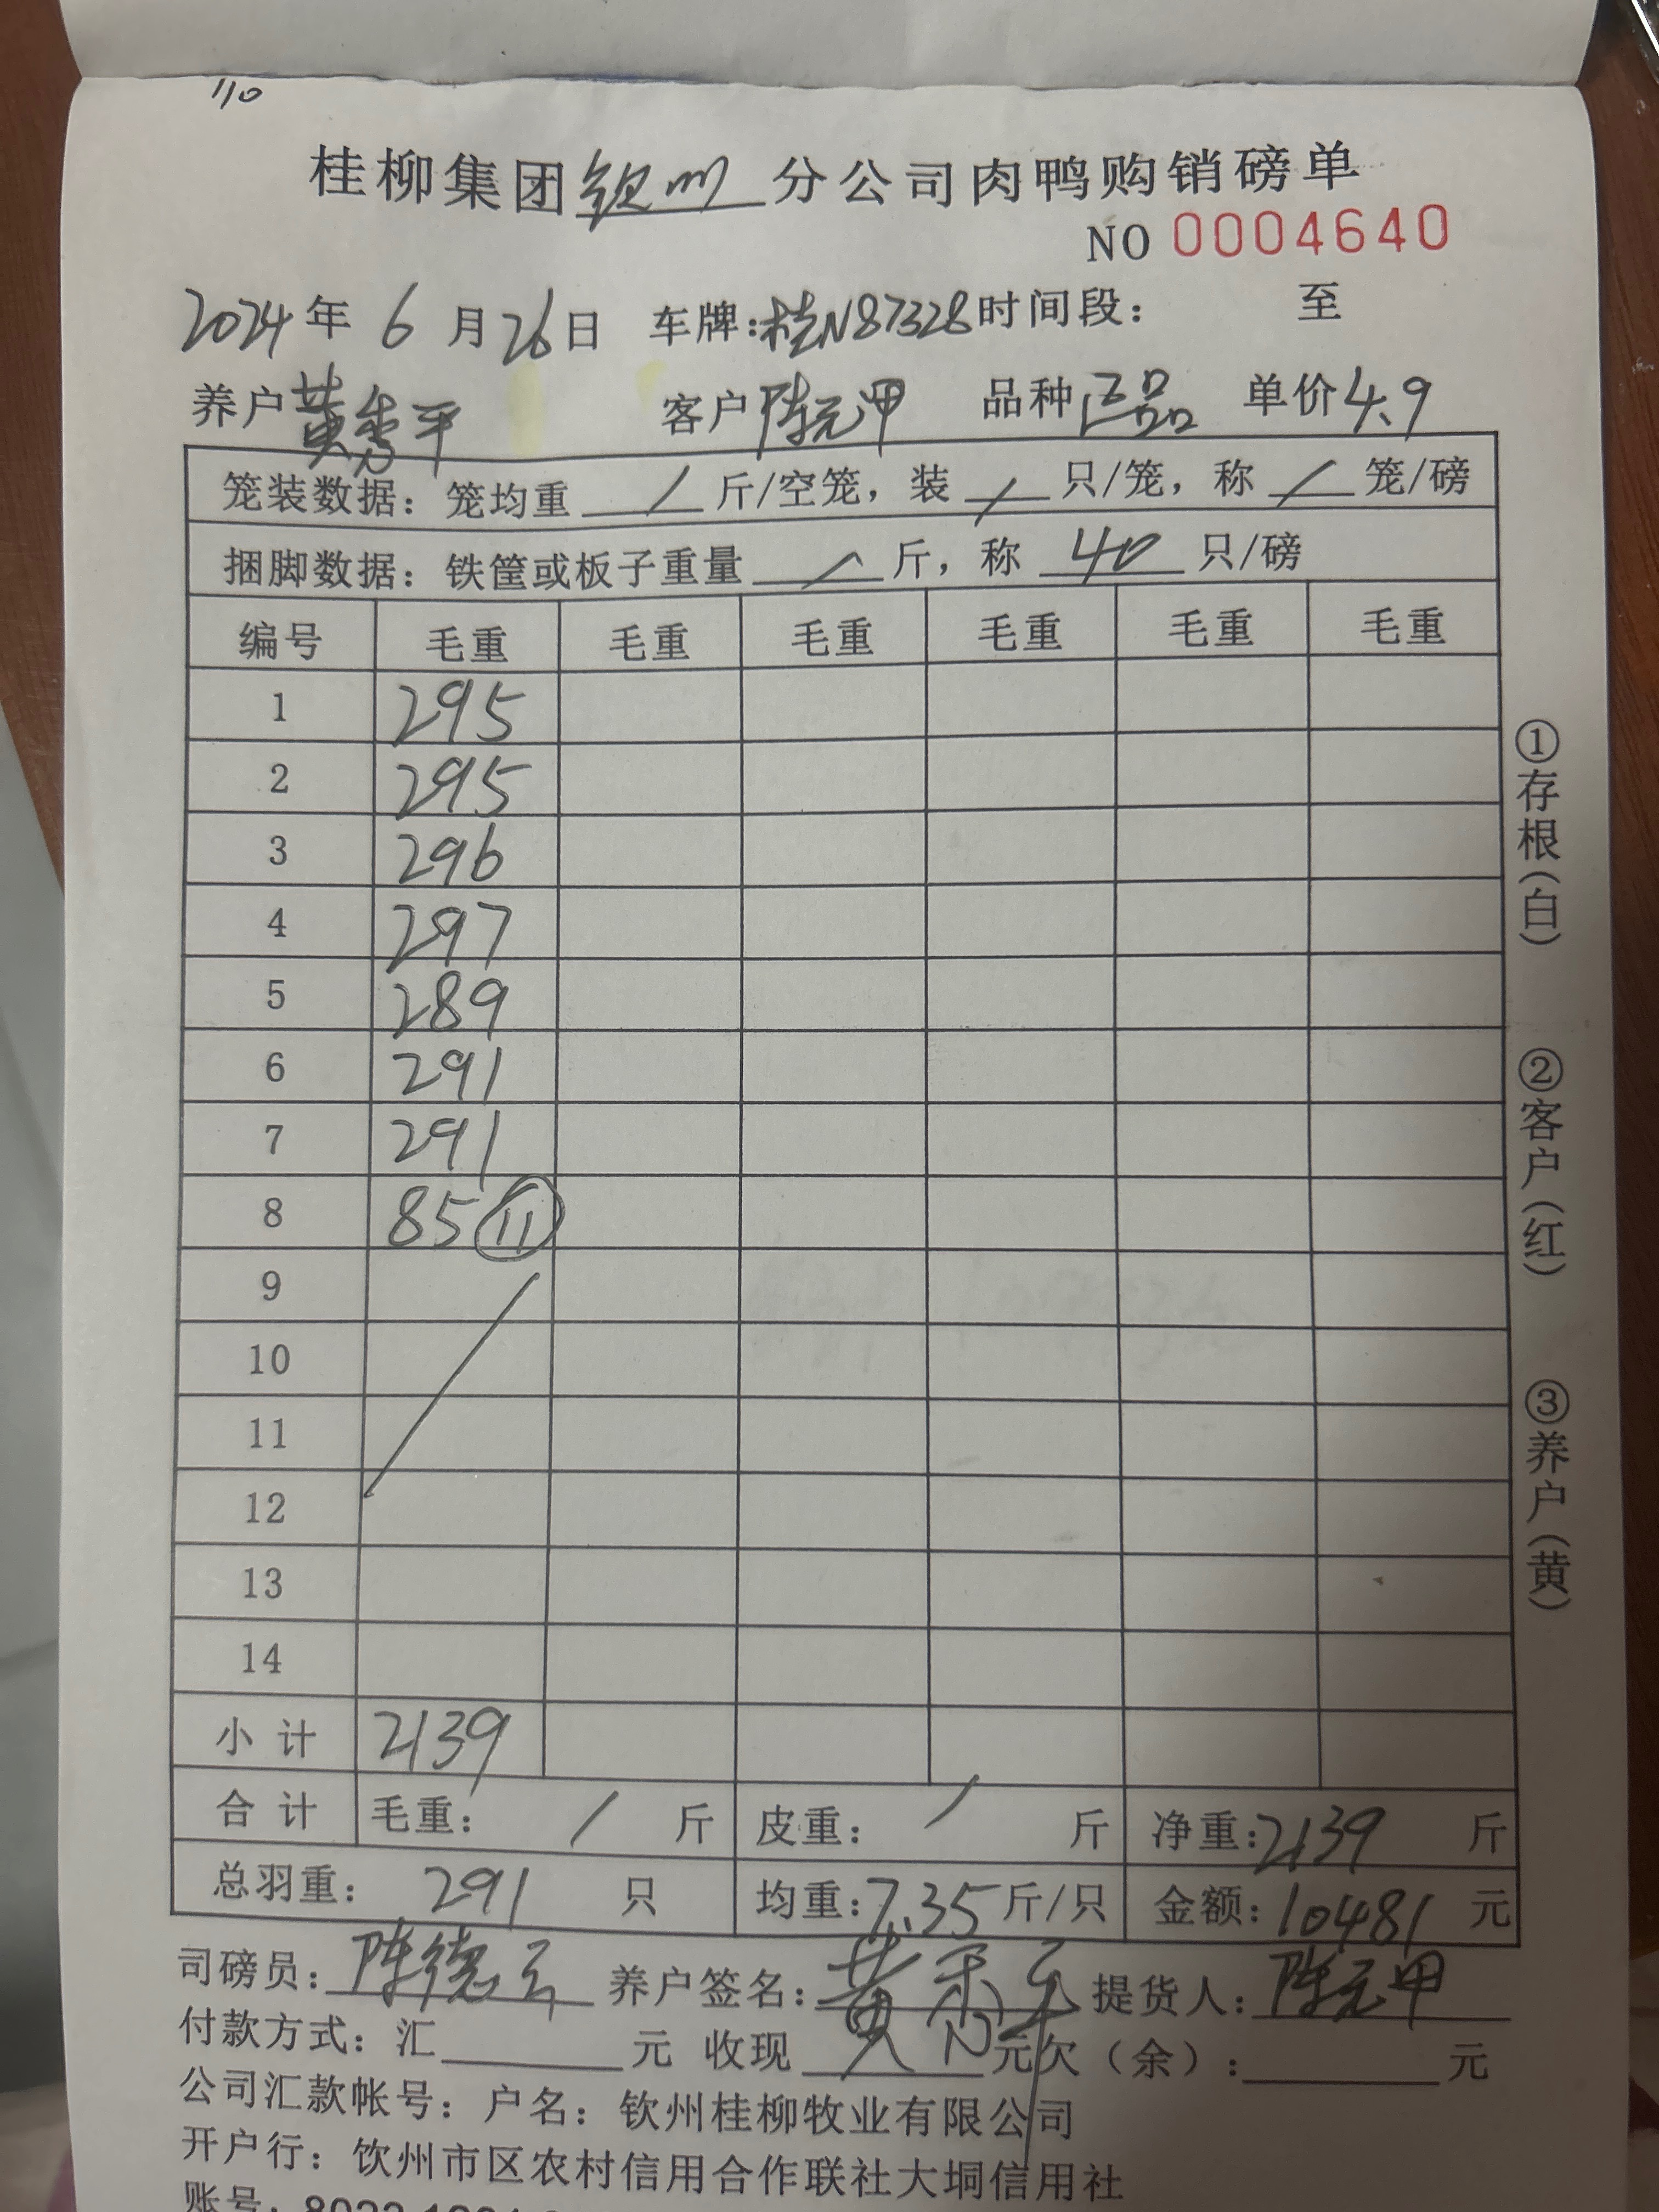 110
桂柳集团钦州分公司肉鸭购销磅单
NO 0004640
2024年6月26日 车牌:桂N87328时间段: 至
养户黄秀平 客户陈元甲 品种正品 单价4.9
笼装数据:笼均重 / 斤/空笼,装 / 只/笼,称 / 笼/磅
捆脚数据:铁筐或板子重量 / 斤,称 40 只/磅
编号 毛重 毛重 毛重 毛重 毛重 毛重
1 295
2 295
3 296
4 297
5 289
6 291
7 291
8 85 ⑪
9
10
11
12
13
14
小计 2139
合计 毛重: / 斤 皮重: / 斤 净重:2139 斤
总羽重: 291 只 均重:7.35斤/只 金额:10481 元
司磅员:陈德 养户签名:黄秀平 提货人:陈元甲
付款方式:汇 元 收现 元欠(余): 元
公司汇款帐号:户名:钦州桂柳牧业有限公司
开户行:饮州市区农村信用合作联社大垌信用社
账号:
①存根(白)
②客户(红)
③养户(黄)